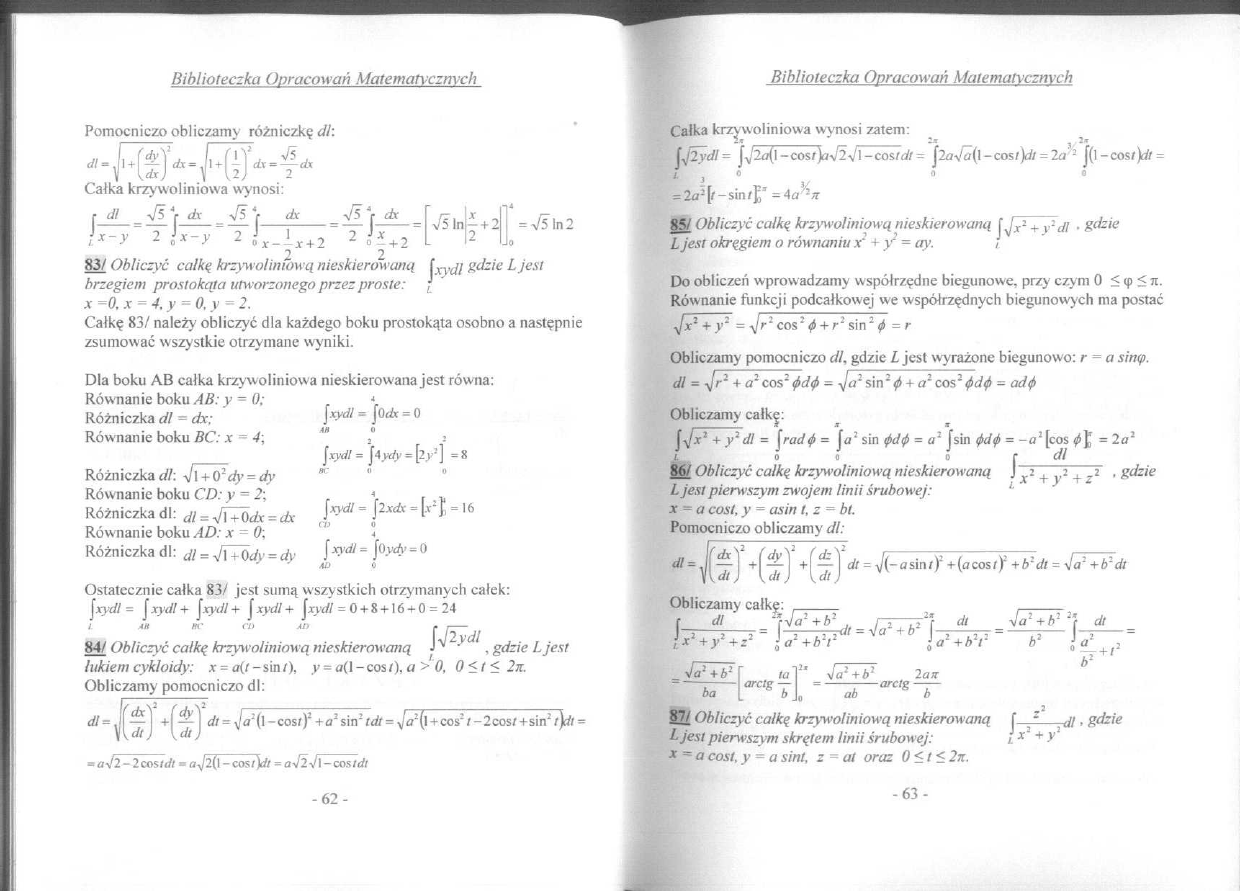 Biblioteczka Opracowań Matematycznych
Pomocniczo obliczamy różniczkę dl:
dl = √(1+(dy/dx)²) dx = √(1+(1/2)²) dx = √5/2 dx
Całka krzywoliniowa wynosi:
∫_L dl/(x−y) = √5/2 ∫_0^4 dx/(x−y) = √5/2 ∫_0^4 dx/(x−½x+2) = √5/2 ∫_0^4 dx/(x/2+2) = [√5 ln|x/2+2|]_0^4 = √5 ln 2
83/ Obliczyć całkę krzywoliniową nieskierowaną ∫_L xydl gdzie L jest
brzegiem prostokąta utworzonego przez proste:
x =0, x = 4, y = 0, y = 2.
Całkę 83/ należy obliczyć dla każdego boku prostokąta osobno a następnie
zsumować wszystkie otrzymane wyniki.
Dla boku AB całka krzywoliniowa nieskierowana jest równa:
Równanie boku AB: y = 0;
Różniczka dl = dx; ∫_AB xydl = ∫_0^4 0dx = 0
Równanie boku BC: x = 4;
Różniczka dl: √(1+0²) dy = dy ∫_BC xydl = ∫_0^2 4ydy = [2y²]_0^2 = 8
Równanie boku CD: y = 2;
Różniczka dl: dl = √(1+0)dx = dx ∫_CD xydl = ∫_0^4 2xdx = [x²]_0^4 = 16
Równanie boku AD: x = 0;
Różniczka dl: dl = √(1+0)dy = dy ∫_AD xydl = ∫_0^4 0ydy = 0
Ostatecznie całka 83/ jest sumą wszystkich otrzymanych całek:
∫_L xydl = ∫_AB xydl + ∫_BC xydl + ∫_CD xydl + ∫_AD xydl = 0+8+16+0 = 24
84/ Obliczyć całkę krzywoliniową nieskierowaną ∫_L √(2y)dl , gdzie L jest
łukiem cykloidy: x = a(t−sin t), y = a(1−cos t), a > 0, 0 ≤ t ≤ 2π.
Obliczamy pomocniczo dl:
dl = √((dx/dt)²+(dy/dt)²) dt = √(a²(1−cost)²+a² sin² t)dt = √(a²(1+cos² t−2cost+sin² t))dt =
= a√(2−2cost)dt = a√(2(1−cost))dt = a√2√(1−cost)dt
- 62 -
Biblioteczka Opracowań Matematycznych
Całka krzywoliniowa wynosi zatem:
∫_L √(2y)dl = ∫_0^2π √(2a(1−cost))a√2√(1−cost)dt = ∫_0^2π 2a√a(1−cost)dt = 2a^(3/2) ∫_0^2π (1−cost)dt =
= 2a^(3/2)[t−sin t]_0^2π = 4a^(3/2)π
85/ Obliczyć całkę krzywoliniową nieskierowaną ∫_L √(x²+y²)dl , gdzie
L jest okręgiem o równaniu x² + y² = ay.
Do obliczeń wprowadzamy współrzędne biegunowe, przy czym 0 ≤ φ ≤ π.
Równanie funkcji podcałkowej we współrzędnych biegunowych ma postać
√(x²+y²) = √(r² cos² ϕ+r² sin² ϕ) = r
Obliczamy pomocniczo dl, gdzie L jest wyrażone biegunowo: r = a sinφ.
dl = √(r²+a² cos² ϕ)dϕ = √(a² sin² ϕ+a² cos² ϕ)dϕ = adϕ
Obliczamy całkę:
∫_L √(x²+y²) dl = ∫_0^π radϕ = ∫_0^π a² sin ϕdϕ = a² ∫_0^π sin ϕdϕ = −a²[cos ϕ]_0^π = 2a²
86/ Obliczyć całkę krzywoliniową nieskierowaną ∫_L dl/(x²+y²+z²) , gdzie
L jest pierwszym zwojem linii śrubowej:
x = a cost, y = asin t, z = bt.
Pomocniczo obliczamy dl:
dl = √((dx/dt)²+(dy/dt)²+(dz/dt)²) dt = √((−a sin t)²+(a cos t)²+b²) dt = √(a²+b²)dt
Obliczamy całkę:
∫_L dl/(x²+y²+z²) = ∫_0^2π √(a²+b²)/(a²+b²t²) dt = √(a²+b²) ∫_0^2π dt/(a²+b²t²) = √(a²+b²)/b² ∫_0^2π dt/(a²/b²+t²) =
= √(a²+b²)/ba [arctg ta/b]_0^2π = √(a²+b²)/ab arctg 2aπ/b
87/ Obliczyć całkę krzywoliniową nieskierowaną ∫_L z²/(x²+y²) dl , gdzie
L jest pierwszym skrętem linii śrubowej:
x = a cost, y = a sint, z = at oraz 0 ≤ t ≤ 2π.
- 63 -